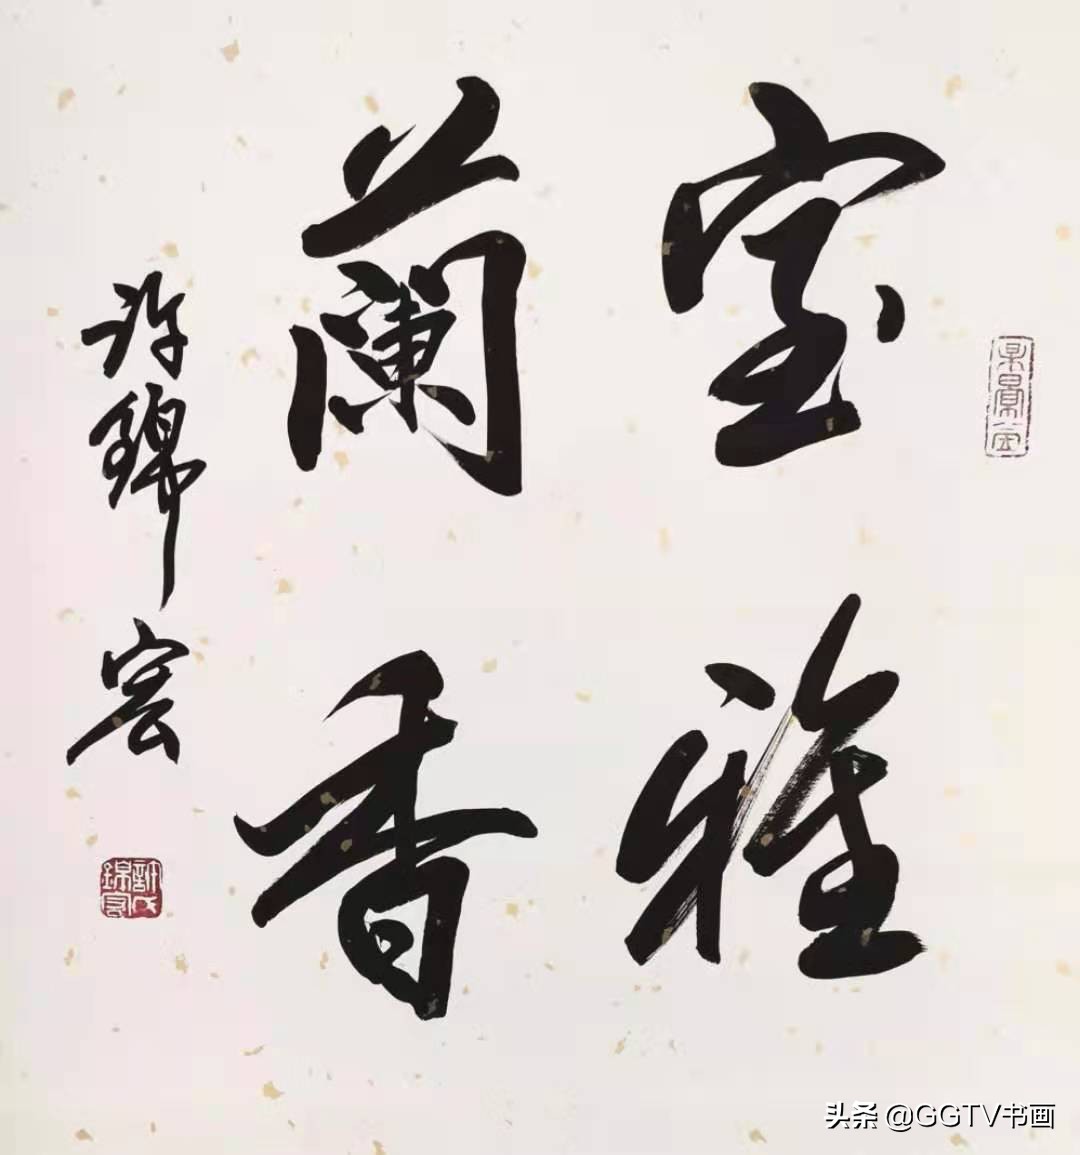 室雅
蘭香
许錦宏
头条 @GGTV书画